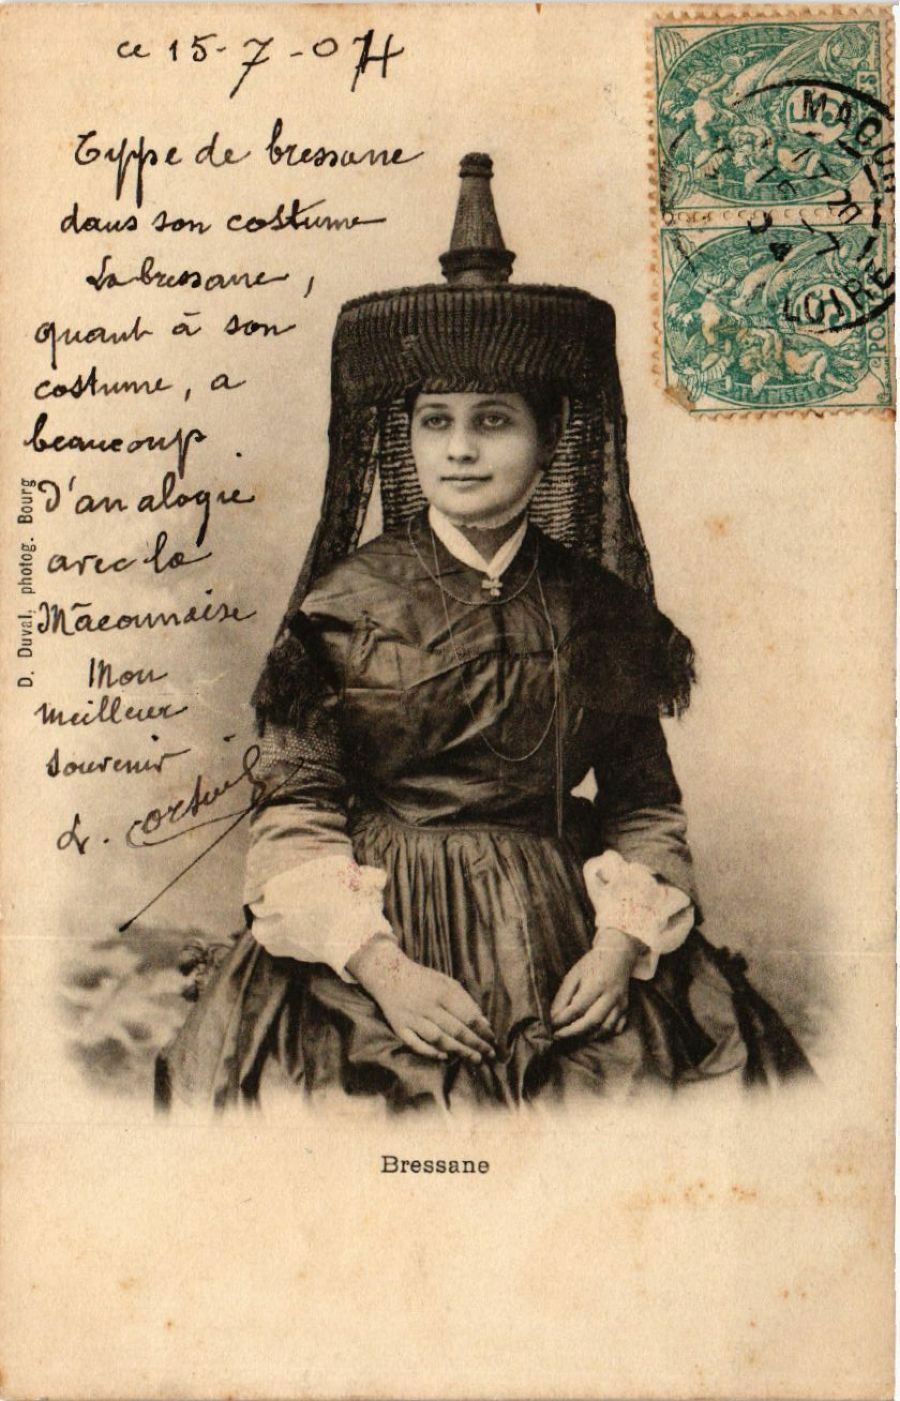 ce 15-7-04
Type de bressane
dans son costume
La bressane,
quant à son
costume, a
beaucoup
d'analogie
avec la
Mâconnaise
Mon
meilleur
souvenir
L.
D. Duval, photog. Bourg
Bressane
MACON
LOIRE